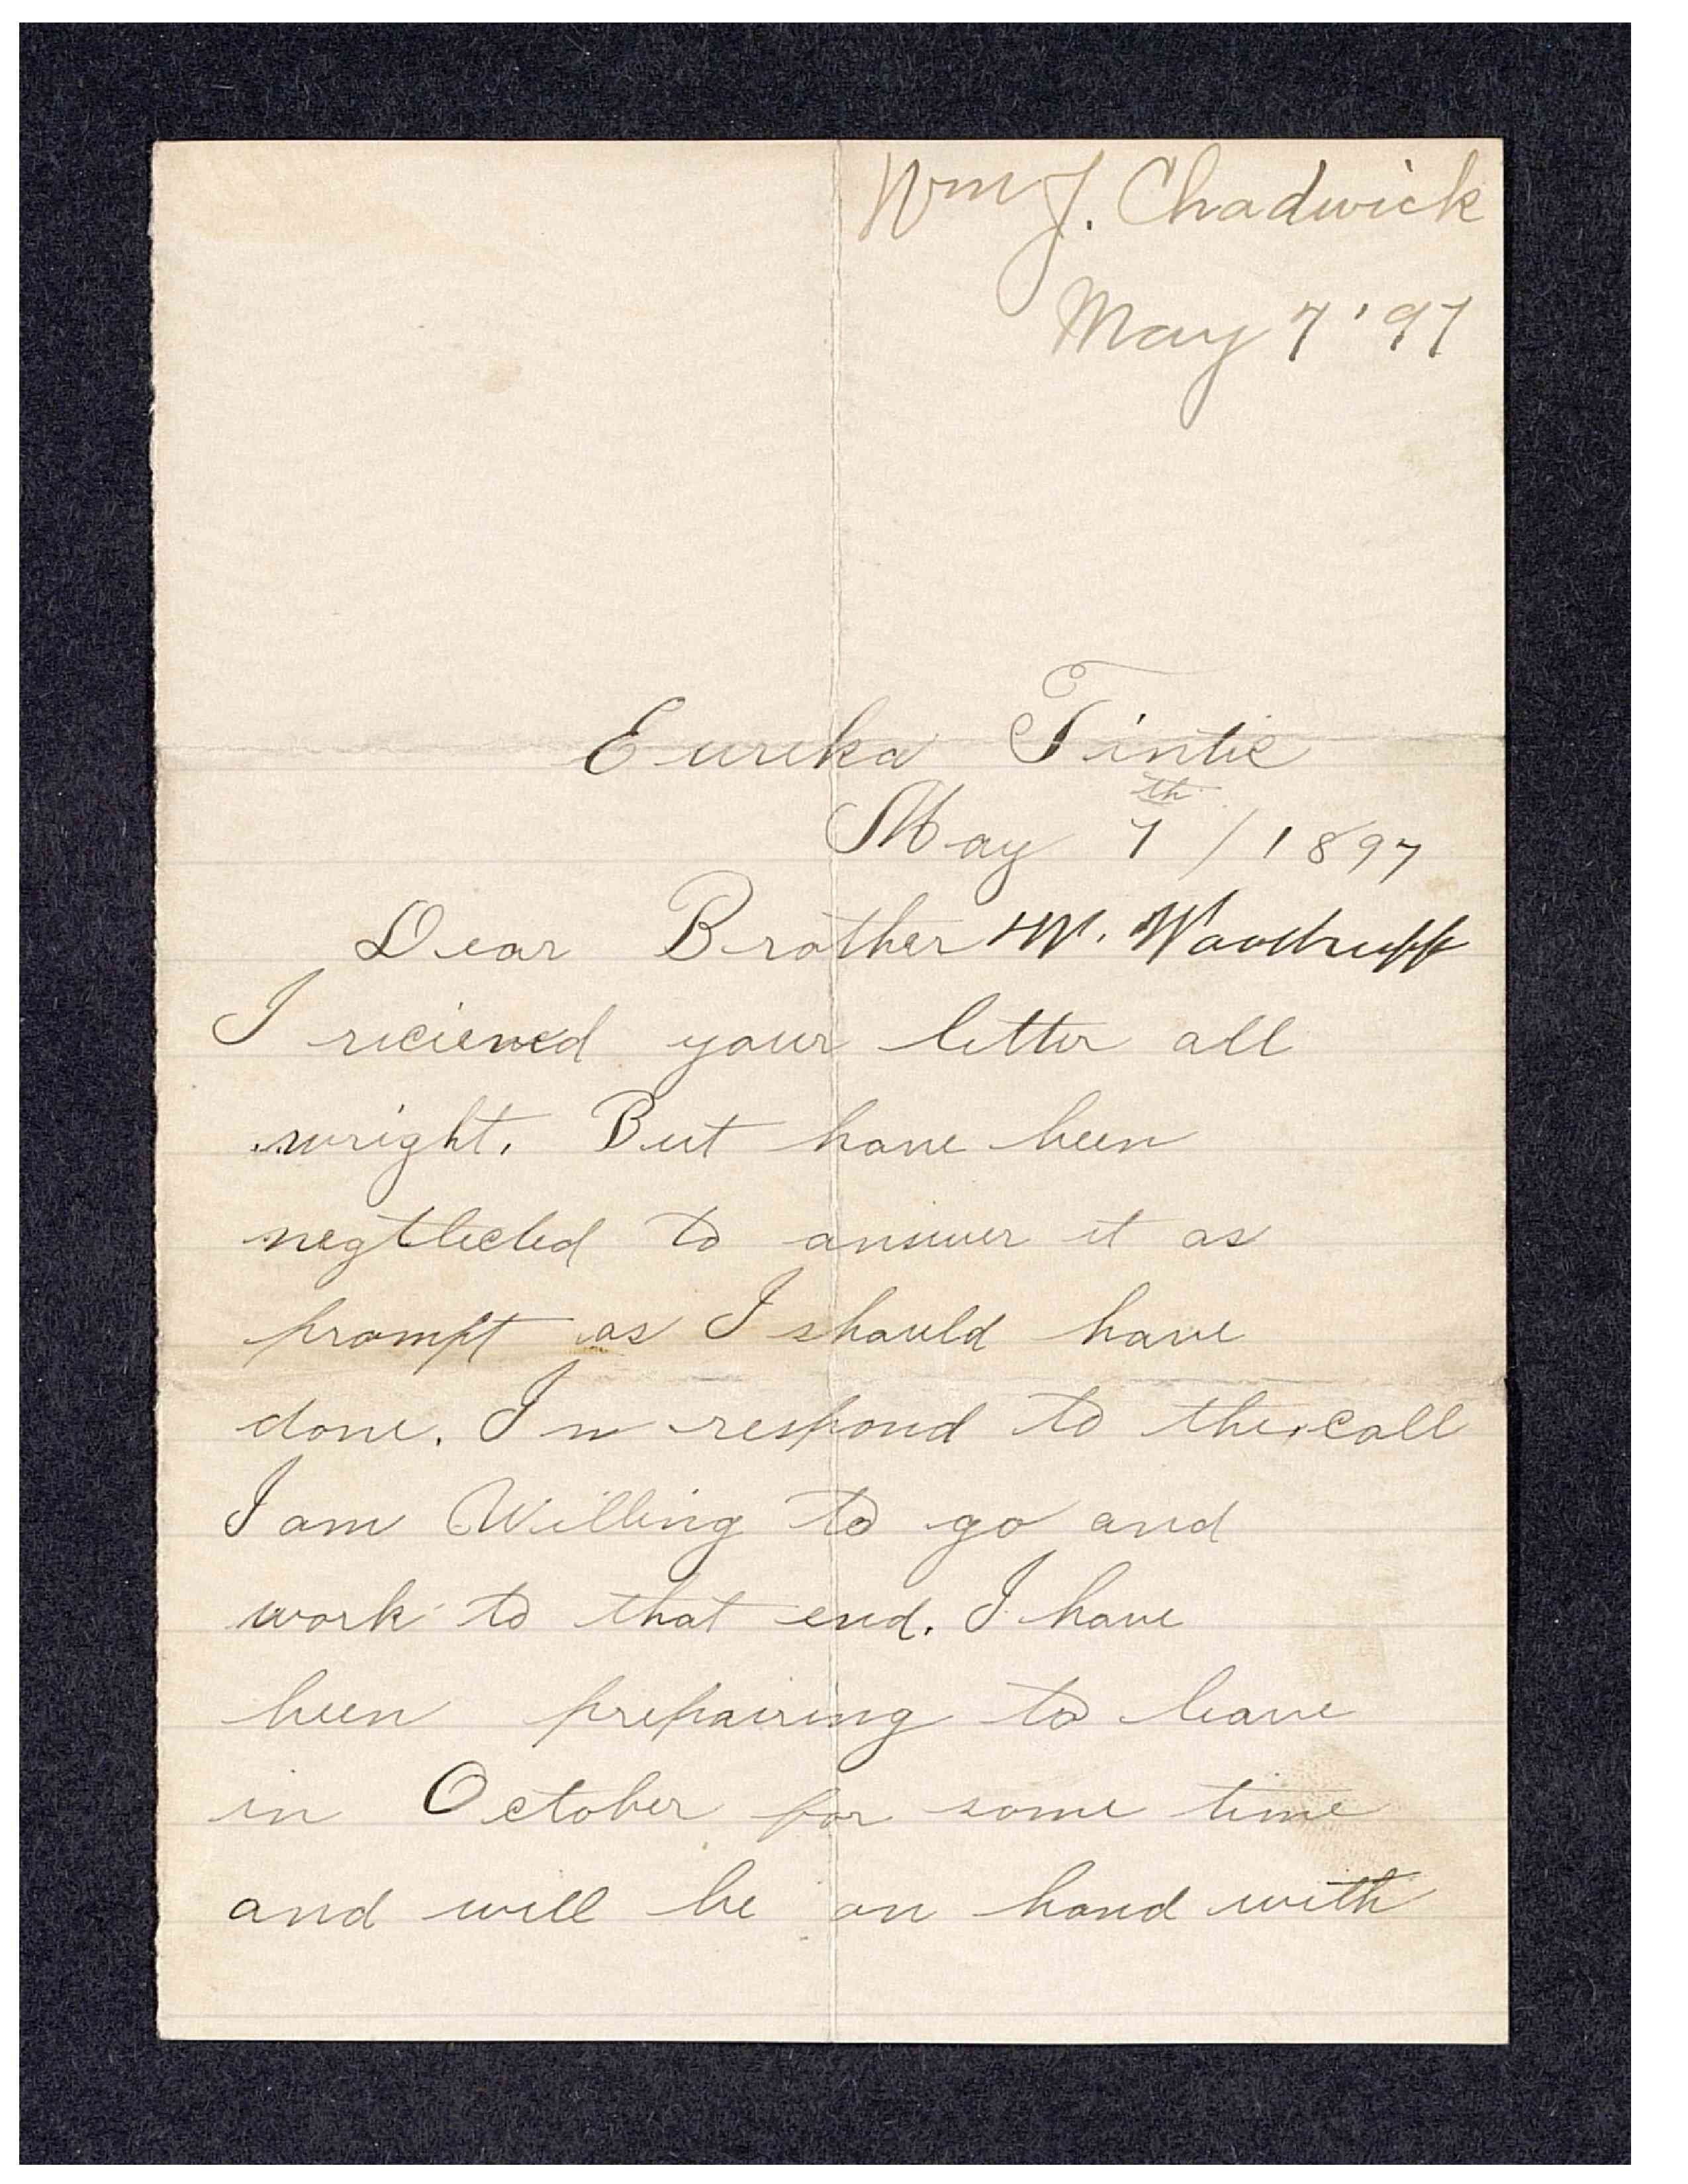 Wm J. Chadwick
May 7 '97
Eureka Tintic
May 7th / 1897
Dear Brother W. Woodruff
I recieved your letter all
wright. But have been
negtlected to answer it as
prompt as I should have
done. In respond to the call
I am Willing to go and
work to that end. I have
been prepairing to leave
in October for some time
and will be on hand with